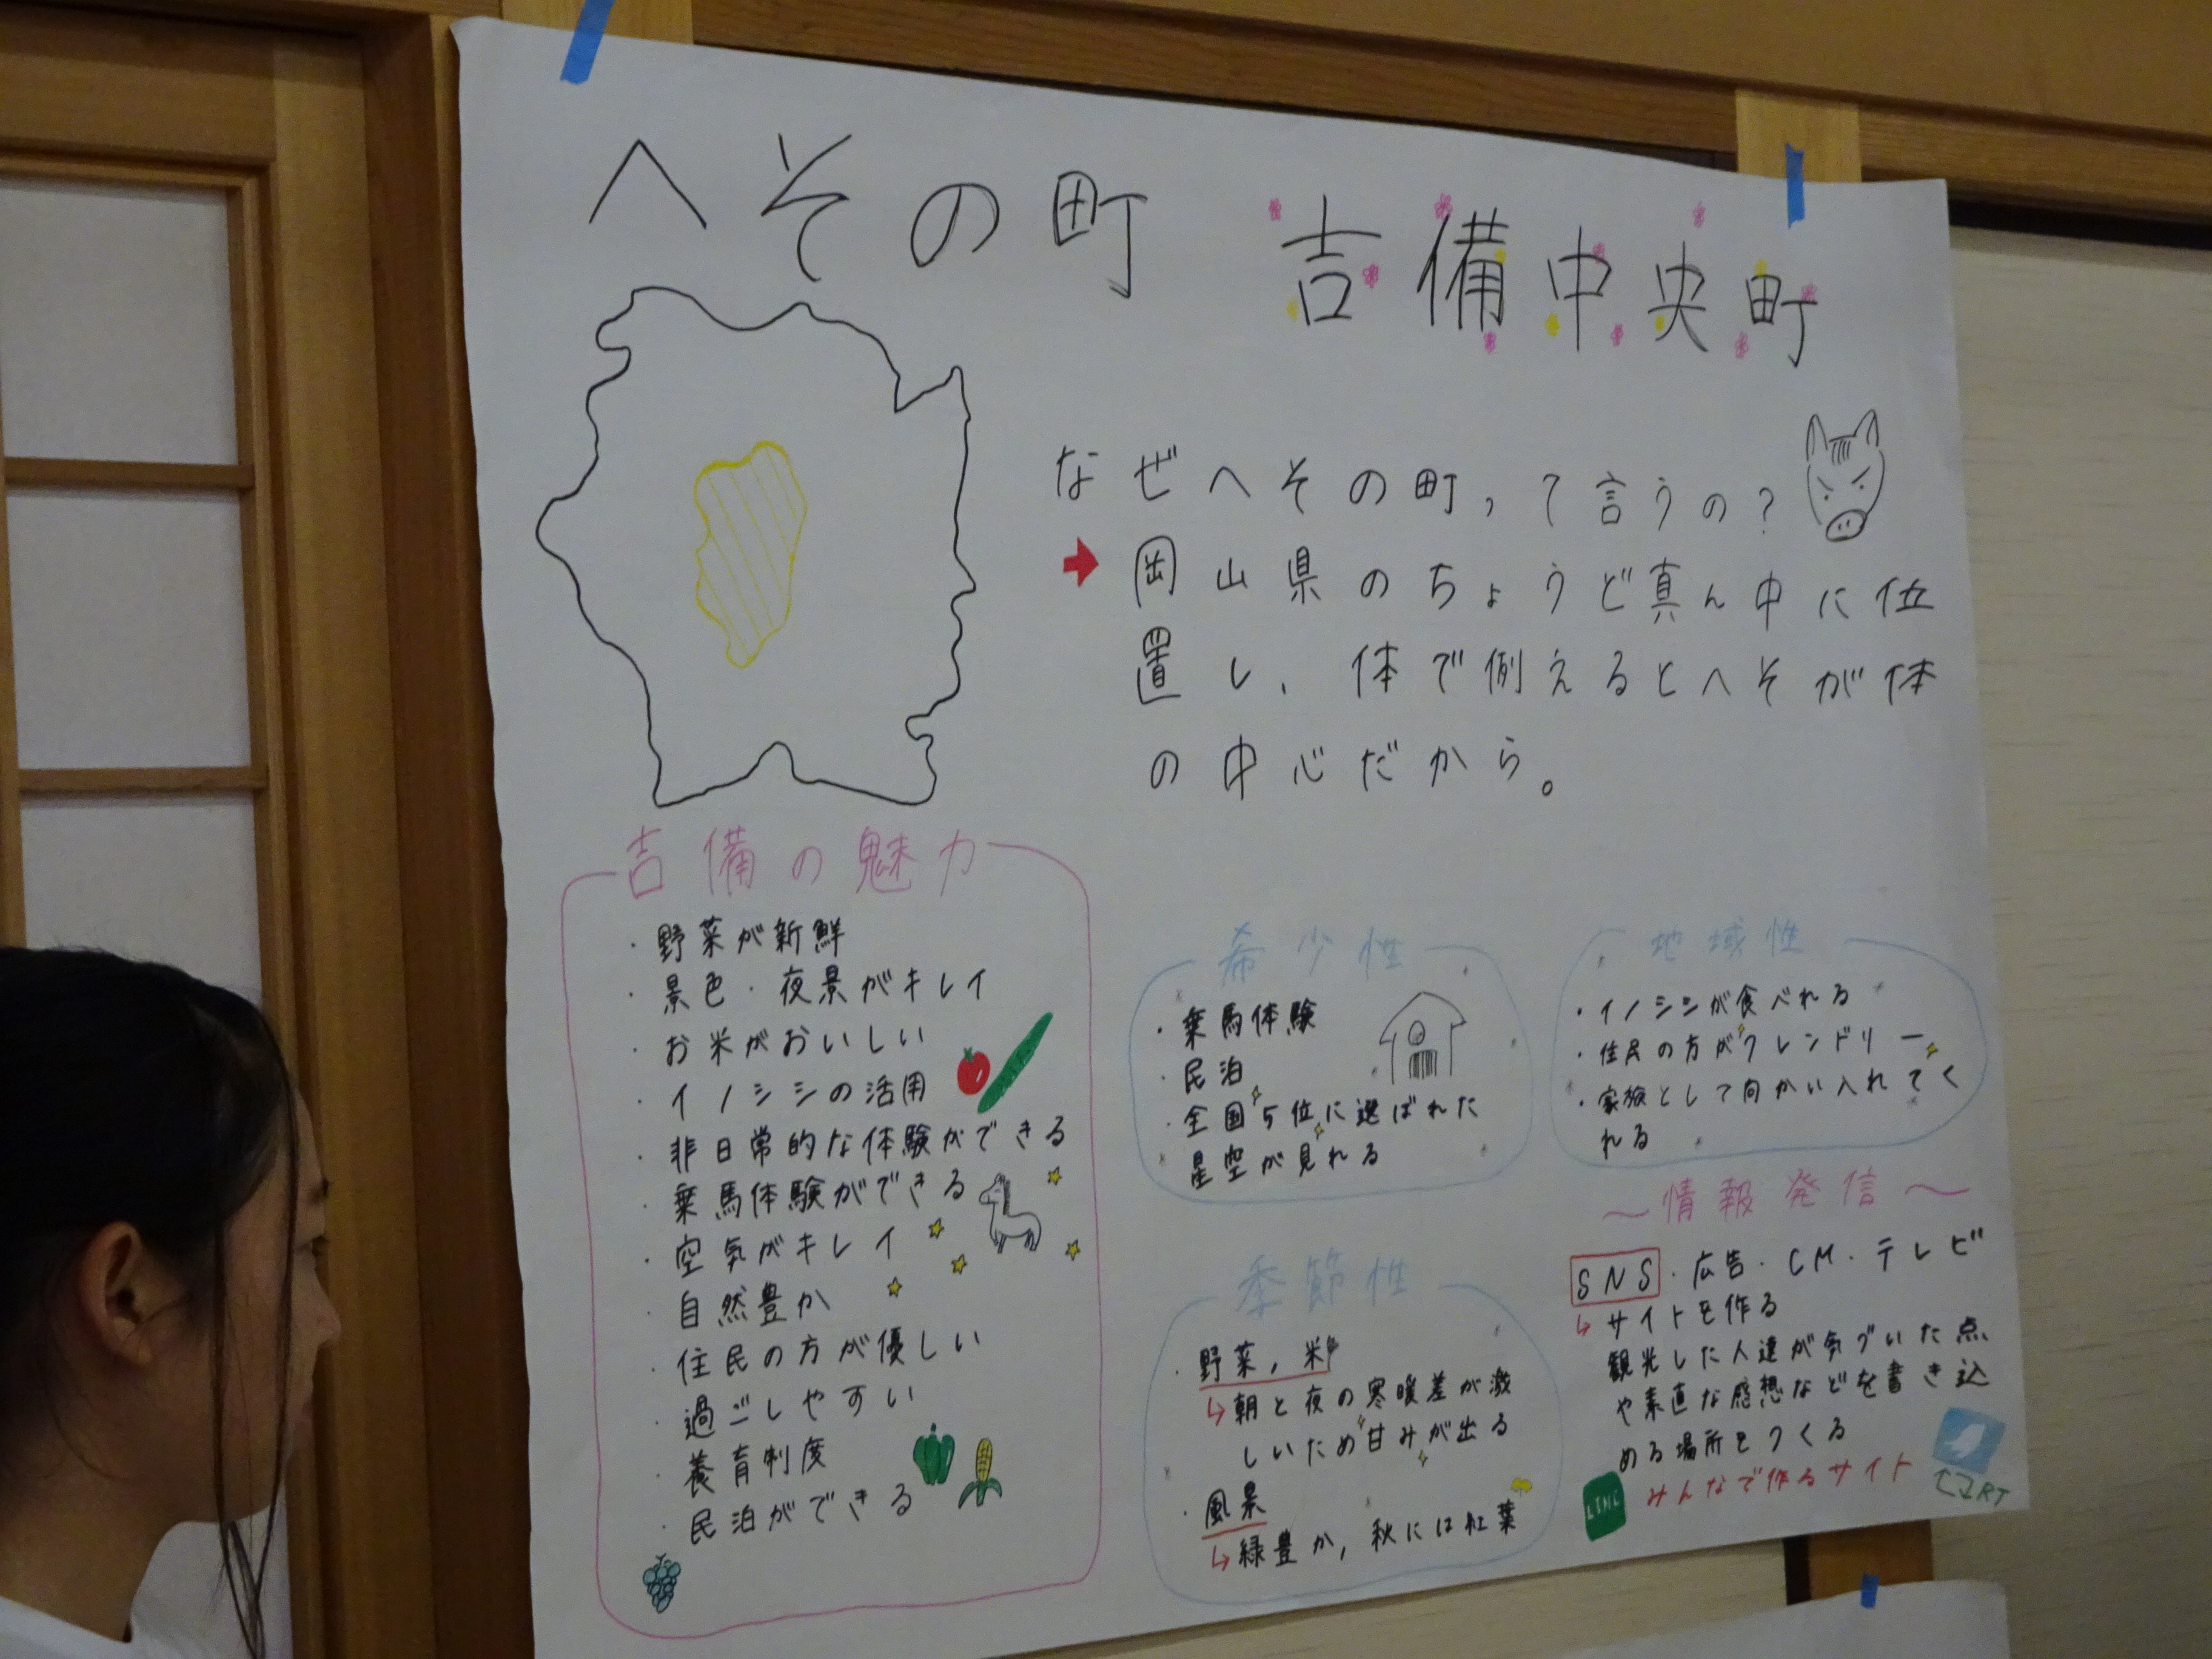 へその町 吉備中央町
なぜへその町って言うの?
岡山県のちょうど真ん中に位
置し、体で例えるとへそが体
の中心だから。
吉備の魅力
・野菜が新鮮
・景色・夜景がキレイ
・お米がおいしい
・イノシシの活用
・非日常的な体験ができる
・乗馬体験ができる
・空気がキレイ
・自然豊か
・住民の方が優しい
・過ごしやすい
・養育制度
・民泊ができる
希少性
・乗馬体験
・民泊
・全国5位に選ばれた
星空が見れる
地域性
・イノシシが食べれる
・住民の方がフレンドリー
・家族として向かい入れてく
れる
季節性
・野菜,米
朝と夜の寒暖差が激
しいため甘みが出る
・風景
緑豊か,秋には紅葉
〜情報発信〜
SNS・広告・CM・テレビ
サイトを作る
観光した人達が気づいた点
や素直な感想などを書き込
める場所をつくる
みんなで作るサイト
LINE
RT